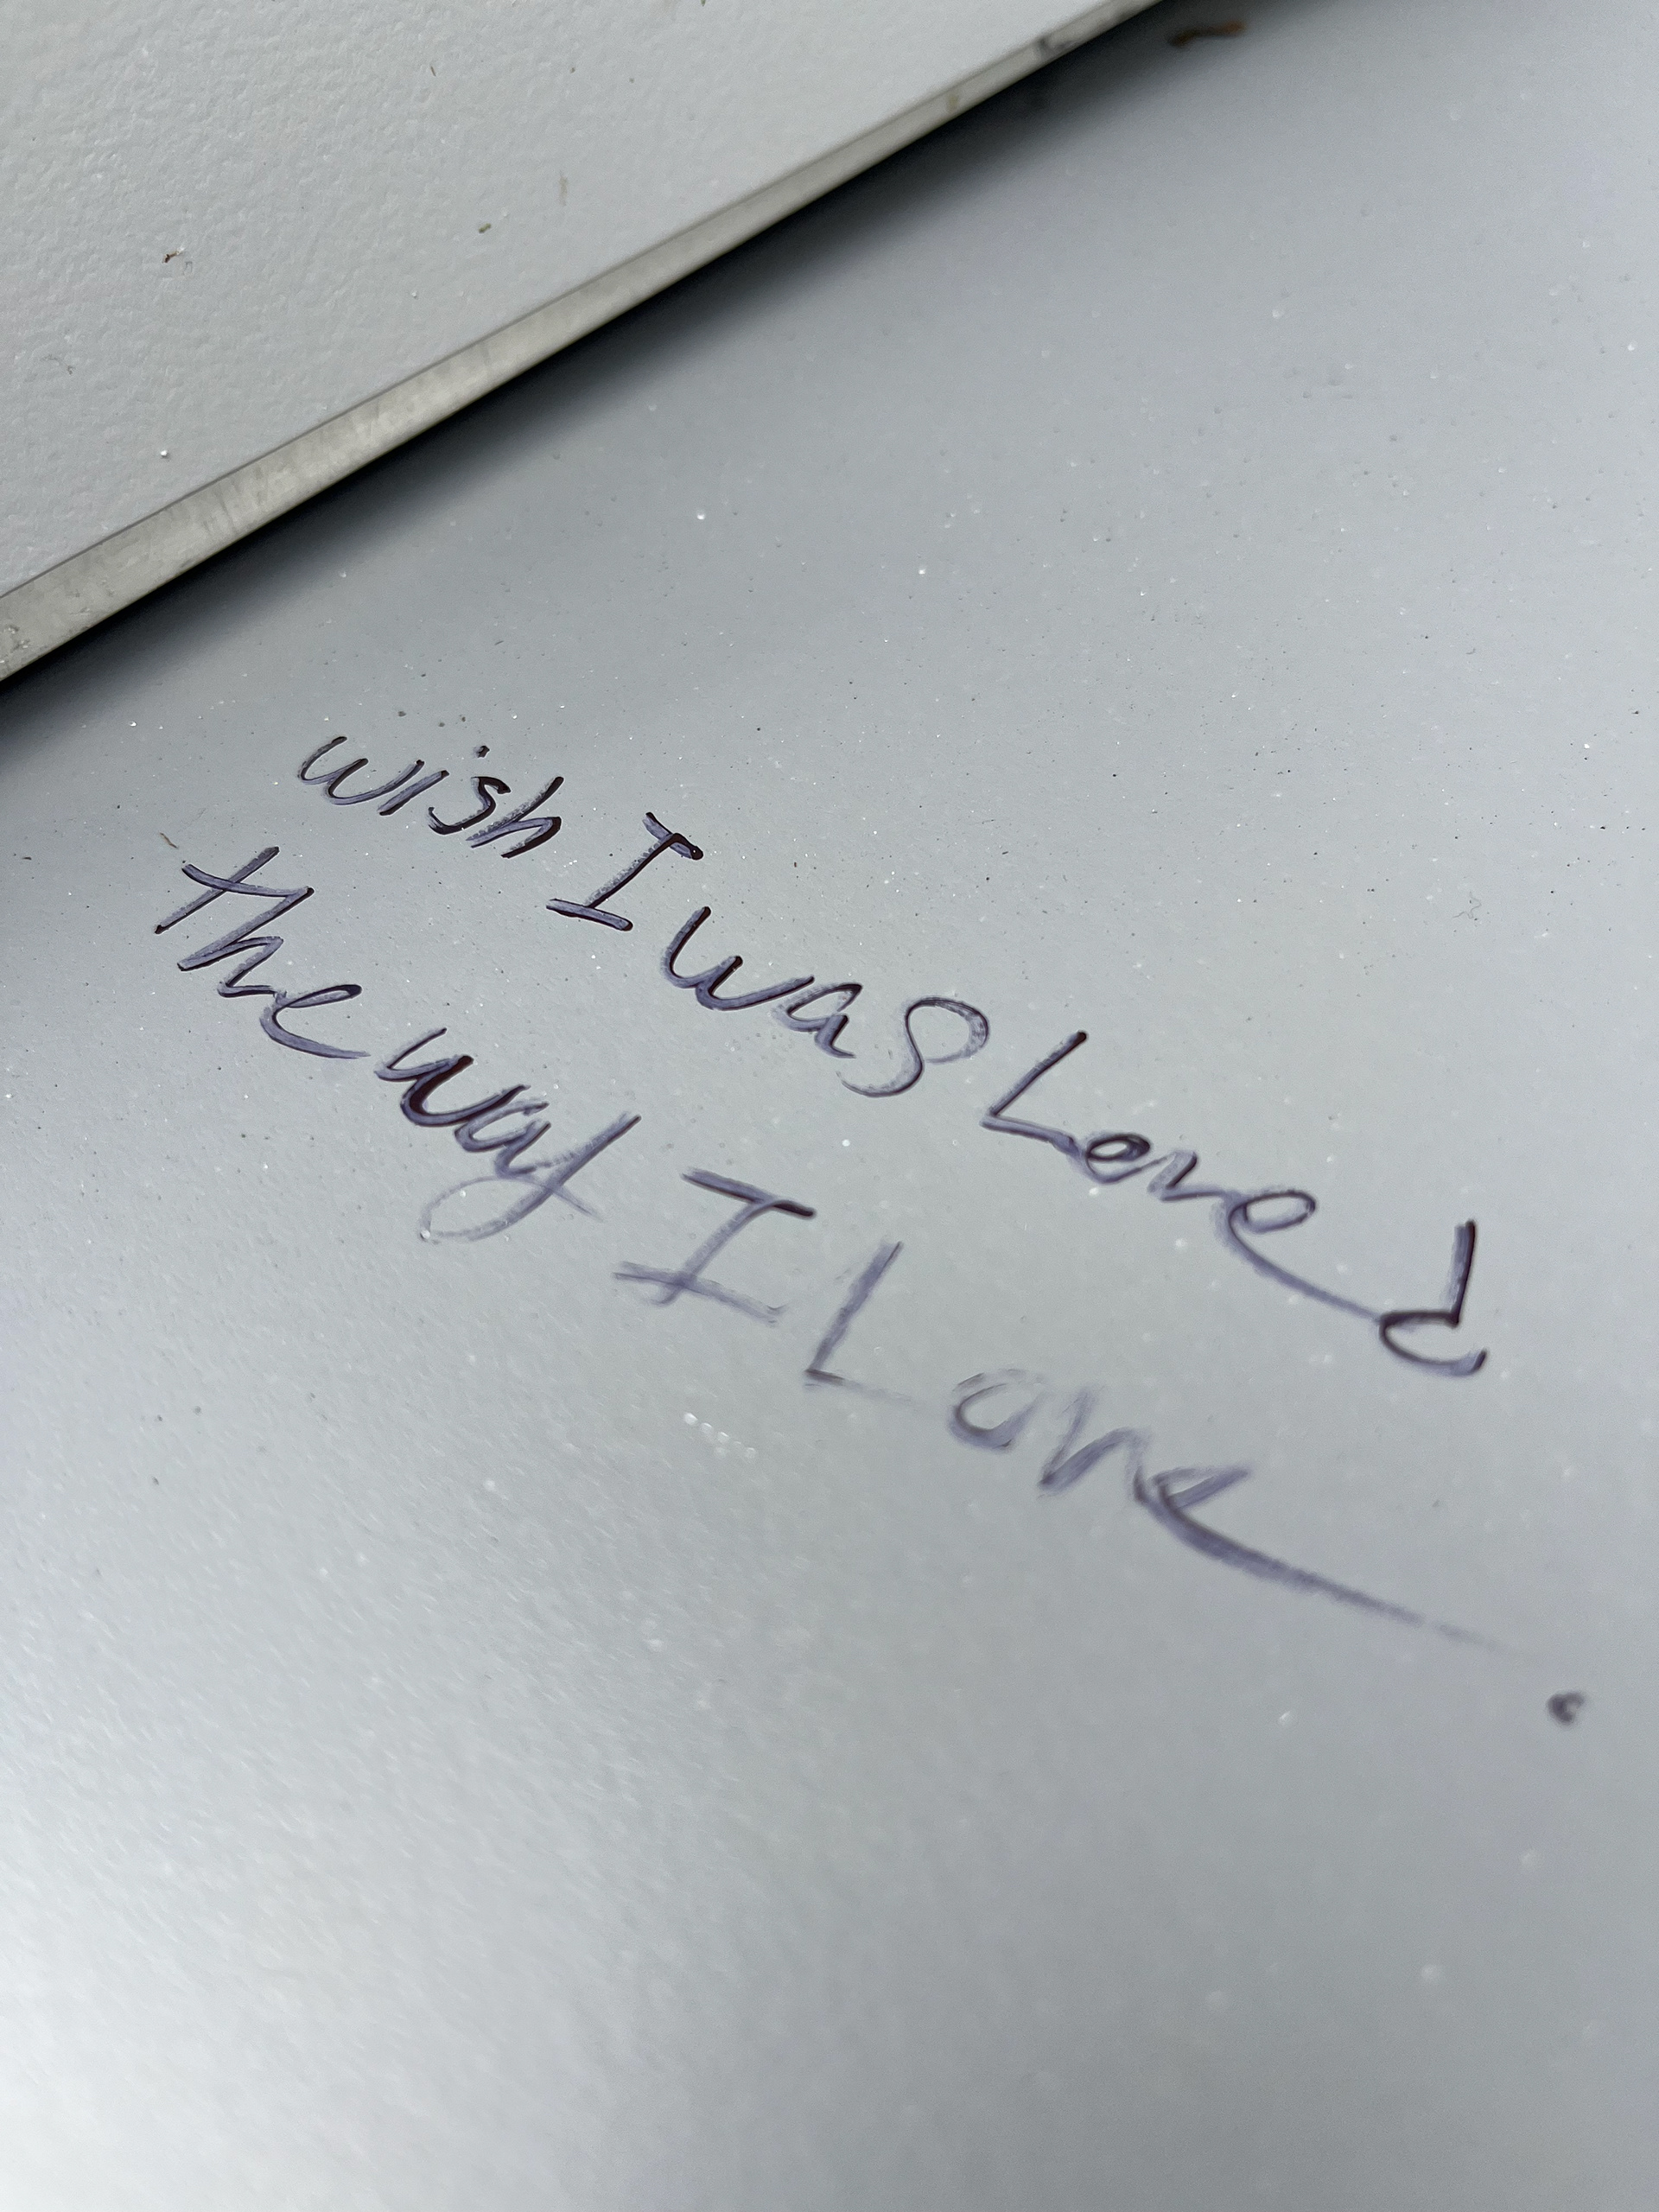 wish I was Loved
the way I Love.